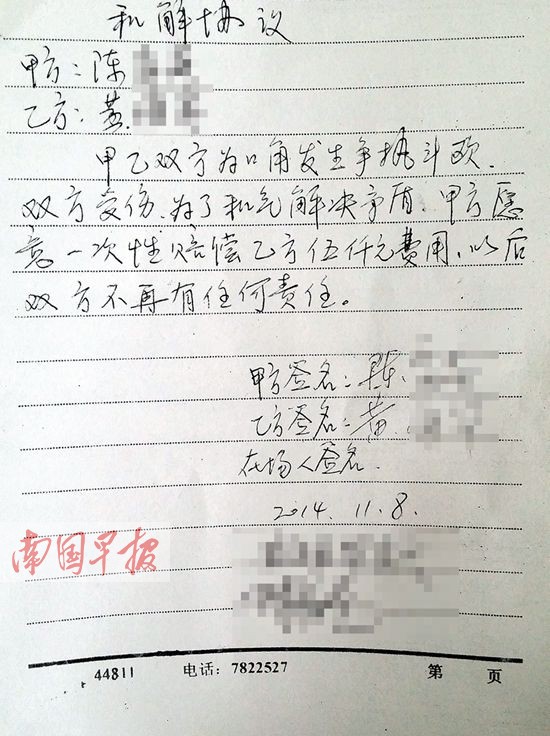 和解协议
甲方:陈
乙方:黄
甲乙双方为口角发生争执斗欧.
双方受伤、为了和气解决矛盾、甲方愿
意一次性赔偿乙方伍仟元费用、以后
双方不再有任何责任。
甲方签名:陈.
乙方签名:黄
在场人签名.
2014.11.8.
南国早报
44811 电话:7822527 第 页